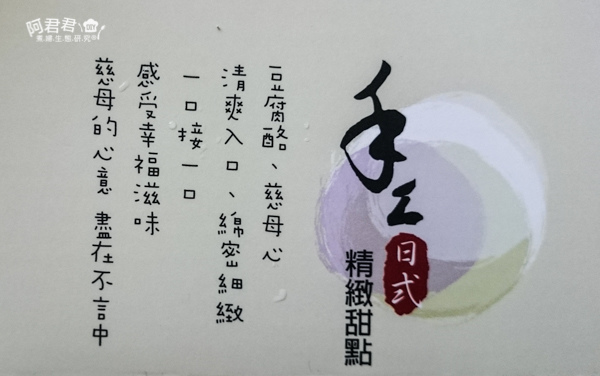 阿君君
DIY
素婦生態研究所
手工
日式
精緻甜點
豆腐酪、慈母心
清爽入口、綿密細緻
一口接一口
感受幸福滋味
慈母的心意 盡在不言中